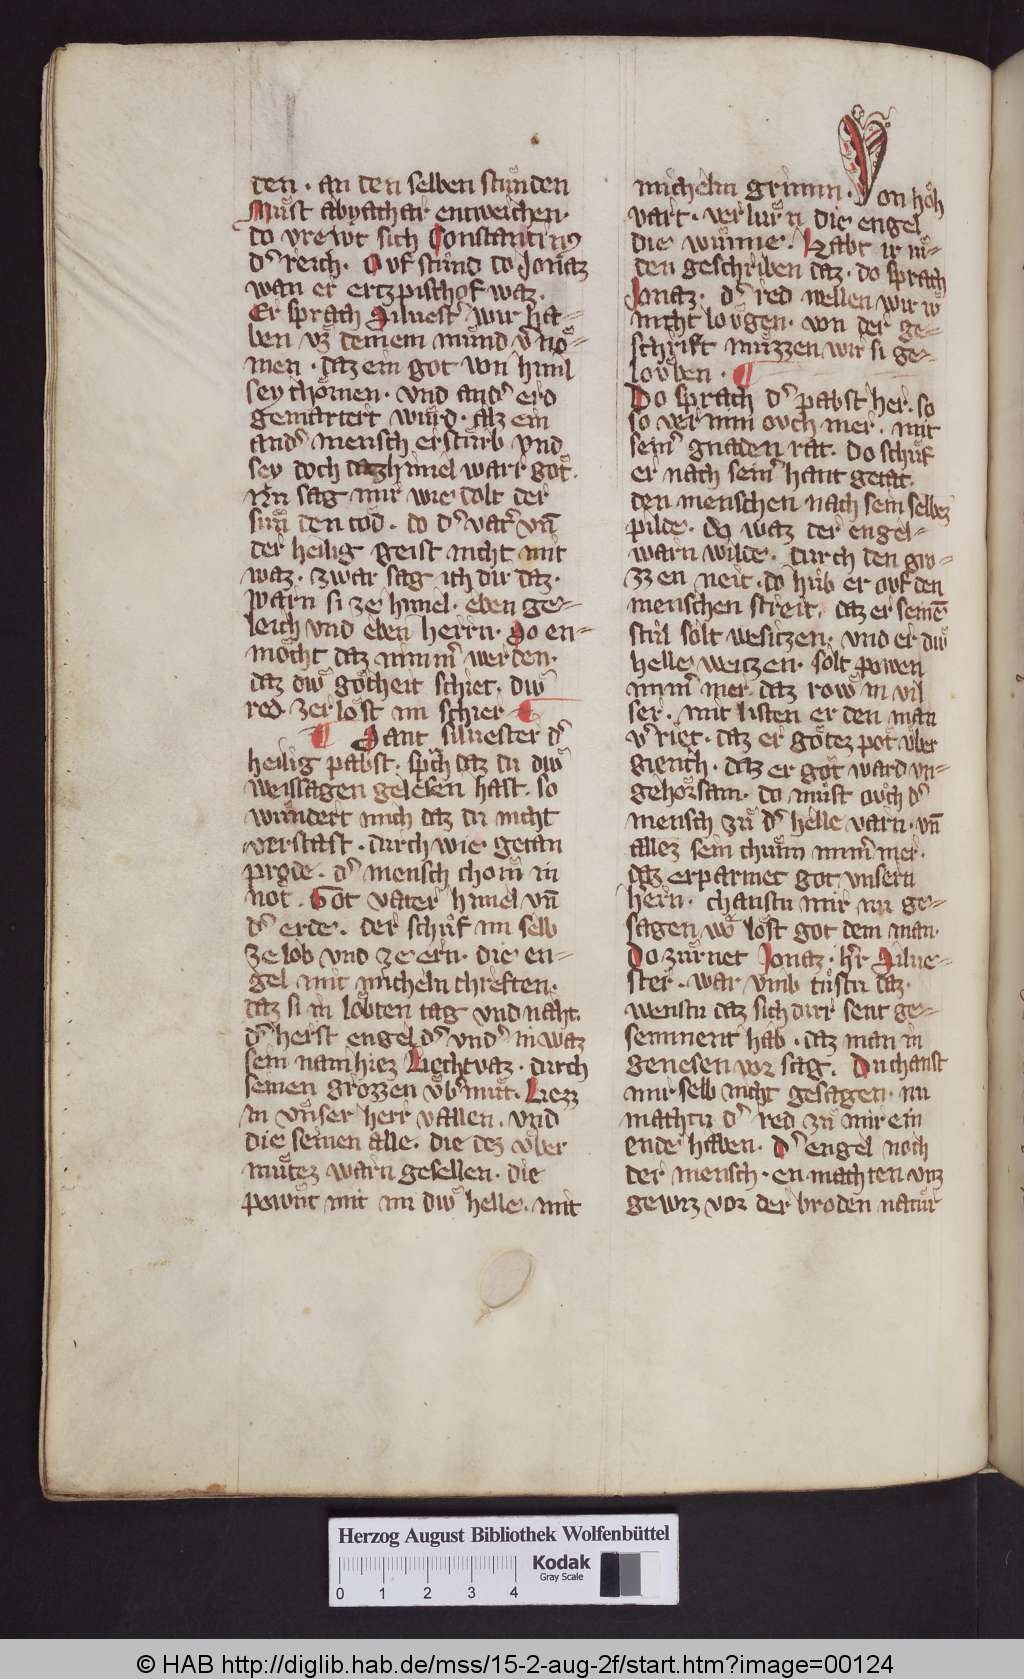 den · an den selben stůnden
Můst abyathar entweichen·
do vrewt sich Constantinus
d͛ reich · Ouf stůnd do Jonaz
wan er ertzpischof waz ·
Er sprach Siluest͛ wir ha=
ben vz deinem můnd v͛nō=
men · daz ein got von himl
sey chomen · vnd and͛ erd
gemartert wůrd · alz ein
and͛ mensch ersturb vnd
sey doch datz himel warr got·
Nu sag mir wie dolt der
sun den tod · do d͛ vat͛ vn̄
der heilig geist nicht mit
waz · zwar sag ich dir daz ·
warn si ze himel · eben ge=
leich vnd eben herrn · So en=
mocht daz nimm͛ werden ·
daz diw gotheit schiet · diw
red zerlost im schier ¶
¶ Sant siluester d͛
heilig pabst · sp͛ch daz du diw
weissagen gelesen hast · so
wundert mich daz du nicht
verstast · durch wie getan
prode · d͛ mensch chom in
not · Got vater himel vn̄
d͛ erde · der schůf im selb
ze lob vnd ze ern · die en=
gel mit micheln chreften ·
daz si in lobten tag vnd naht·
d͛ herst engel d͛ vnd͛ in waz
sein nam hiez Liechtvaz · durch
seinen grozzen vb͛můt · Liezz
in vnser herr vallen · vnd
die seinen alle · die dez vber
můtez warn gesellen · die
powůt mit im diw helle · mit
micheln grimm · Von hoh
vart · verlurn die engel
die wůnne · Habt ir in=
den geschriben daz · do sprach
Jonaz · d͛ red wellen wir iv
nicht lovgen · von der ge=
schrift můzzen wir si ge=
lovben · ¶
Do sprach d͛ pabst her · so
so vernim ovch mer · mit
sein͛ gnaden rat · Do schůf
er nach sein͛ hant getat ·
den menschen nach sein selbez
pilde · Do waz der engel=
warn wilde · durch den gro=
zzen neit · do hůb er ovf den
menschen streit · daz er seinē
stůl solt wesitzen · vnd er diw
helle weitzen · solt powen
nim͛ mer · daz row in vil
ser · mit listen er den man
v͛riet · daz er gotez pot vber
giench · daz er got ward vn=
gehorsam · do můst ovch d͛
mensch zů d͛ helle varn · vn̄
allez sein chunn nimm͛ mer ·
daz erparmet got vnsern
hern · chanstu mir nu ge=
sagen wo lost got dem man ·
Do zůrnet Jonaz · h͛r Silue=
ster · war vmb tůstu daz ·
wenstu daz sich dirr sent ge=
semnent hab · daz man in
genesen vor sag · Du chanst
mir selb nicht gesagen · nu
machtu d͛ red zů mir ein
ende haben · d͛ engel noch
der mensch · en machten vnz
gewiz vor der broden natůr
Herzog August Bibliothek Wolfenbüttel
0 1 2 3 4
Kodak
Gray Scale
© HAB http://diglib.hab.de/mss/15-2-aug-2f/start.htm?image=00124